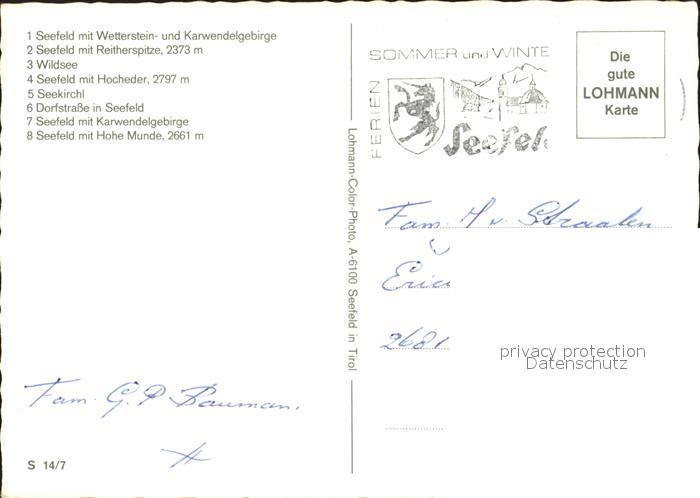 1 Seefeld mit Wetterstein- und Karwendelgebirge
2 Seefeld mit Reitherspitze, 2373 m
3 Wildsee
4 Seefeld mit Hocheder, 2797 m
5 Seekirchl
6 Dorfstraße in Seefeld
7 Seefeld mit Karwendelgebirge
8 Seefeld mit Hohe Munde, 2661 m
Fam. G. P. Bauman.
S 14/7
Lohmann-Color-Photo, A-6100 Seefeld in Tirol
SOMMER und WINTE
FERIEN
Seefel
Die
gute
LOHMANN
Karte
Fam. H v. Straalen
Erica
2681
privacy protection
Datenschutz